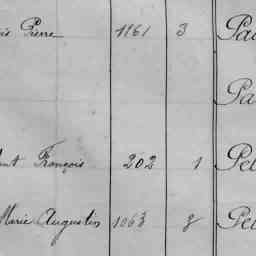 Pierre 1161 3 Pa
Pa
François 202 1 Pel
Marie Augustin 1063 8 Pel